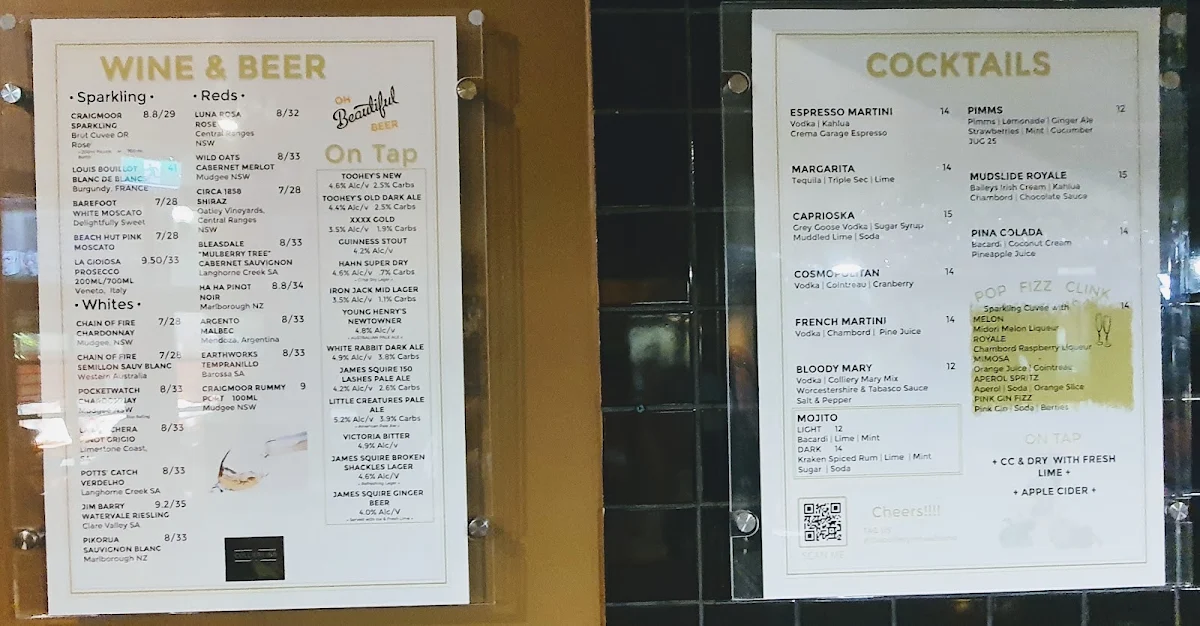 WINE & BEER
• Sparkling •
CRAIGMOOR 8.8/29
SPARKLING
Brut Cuvee OR
Rose
LOUIS BOUILLOT 41
BLANC DE BLANC
Burgundy, FRANCE
BAREFOOT 7/28
WHITE MOSCATO
Delightfully Sweet
BEACH HUT PINK 7/28
MOSCATO
LA GIOIOSA 9.50/33
PROSECCO
200ML/700ML
Veneto, Italy
• Whites •
CHAIN OF FIRE 7/28
CHARDONNAY
Mudgee, NSW
CHAIN OF FIRE 7/28
SEMILLON SAUV BLANC
Western Australia
POCKETWATCH 8/33
CHARDONNAY
Mudgee NSW
8/33
PINOT GRIGIO
Limestone Coast,
POTTS' CATCH 8/33
VERDELHO
Langhorne Creek SA
JIM BARRY 9.2/35
WATERVALE RIESLING
Clare Valley SA
PIKORUA 8/33
SAUVIGNON BLANC
Marlborough NZ
• Reds •
LUNA ROSA 8/32
ROSE
Central Ranges
NSW
WILD OATS 8/33
CABERNET MERLOT
Mudgee NSW
CIRCA 1858 7/28
SHIRAZ
Oatley Vineyards,
Central Ranges
NSW
BLEASDALE 8/33
"MULBERRY TREE"
CABERNET SAUVIGNON
Langhorne Creek SA
HA HA PINOT 8.8/34
NOIR
Marlborough NZ
ARGENTO 8/33
MALBEC
Mendoza, Argentina
EARTHWORKS 8/33
TEMPRANILLO
Barossa SA
CRAIGMOOR RUMMY 9
PORT 100ML
Mudgee NSW
OH
Beautiful
BEER
On Tap
TOOHEY'S NEW
4.6% Alc/v 2.5% Carbs
TOOHEY'S OLD DARK ALE
4.4% Alc/v 2.5% Carbs
XXXX GOLD
3.5% Alc/v 1.9% Carbs
GUINNESS STOUT
4.2% Alc/v
HAHN SUPER DRY
4.6% Alc/v .7% Carbs
IRON JACK MID LAGER
3.5% Alc/v 1.1% Carbs
YOUNG HENRY'S
NEWTOWNER
4.8% Alc/v
• AUSTRALIAN PALE ALE •
WHITE RABBIT DARK ALE
4.9% Alc/v 3.8% Carbs
JAMES SQUIRE 150
LASHES PALE ALE
4.2% Alc/v 2.6% Carbs
LITTLE CREATURES PALE
ALE
5.2% Alc/v 3.9% Carbs
VICTORIA BITTER
4.9% Alc/v
JAMES SQUIRE BROKEN
SHACKLES LAGER
4.6% Alc/v
JAMES SQUIRE GINGER
BEER
4.0% Alc/V
COCKTAILS
ESPRESSO MARTINI 14
Vodka | Kahlua
Crema Garage Espresso
MARGARITA 14
Tequila | Triple Sec | Lime
CAPRIOSKA 15
Grey Goose Vodka | Sugar Syrup
Muddled Lime | Soda
COSMOPOLITAN 14
Vodka | Cointreau | Cranberry
FRENCH MARTINI 14
Vodka | Chambord | Pine Juice
BLOODY MARY 12
Vodka | Colliery Mary Mix
Worcestershire & Tabasco Sauce
Salt & Pepper
MOJITO
LIGHT 12
Bacardi | Lime | Mint
DARK 14
Kraken Spiced Rum | Lime | Mint
Sugar | Soda
Cheers!!!!
SCAN ME
PIMMS 12
Pimms | Lemonade | Ginger Ale
Strawberries | Mint | Cucumber
JUG 25
MUDSLIDE ROYALE 15
Baileys Irish Cream | Kahlua
Chambord | Chocolate Sauce
PINA COLADA 14
Bacardi | Coconut Cream
Pineapple Juice
POP FIZZ CLINK
Sparkling Cuvee with 14
MELON
Midori Melon Liqueur
ROYALE
Chambord Raspberry Liqueur
MIMOSA
Orange Juice | Cointreau
APEROL SPRITZ
Aperol | Soda | Orange Slice
PINK GIN FIZZ
Pink Gin | Soda | Berries
ON TAP
• CC & DRY WITH FRESH
LIME •
• APPLE CIDER •